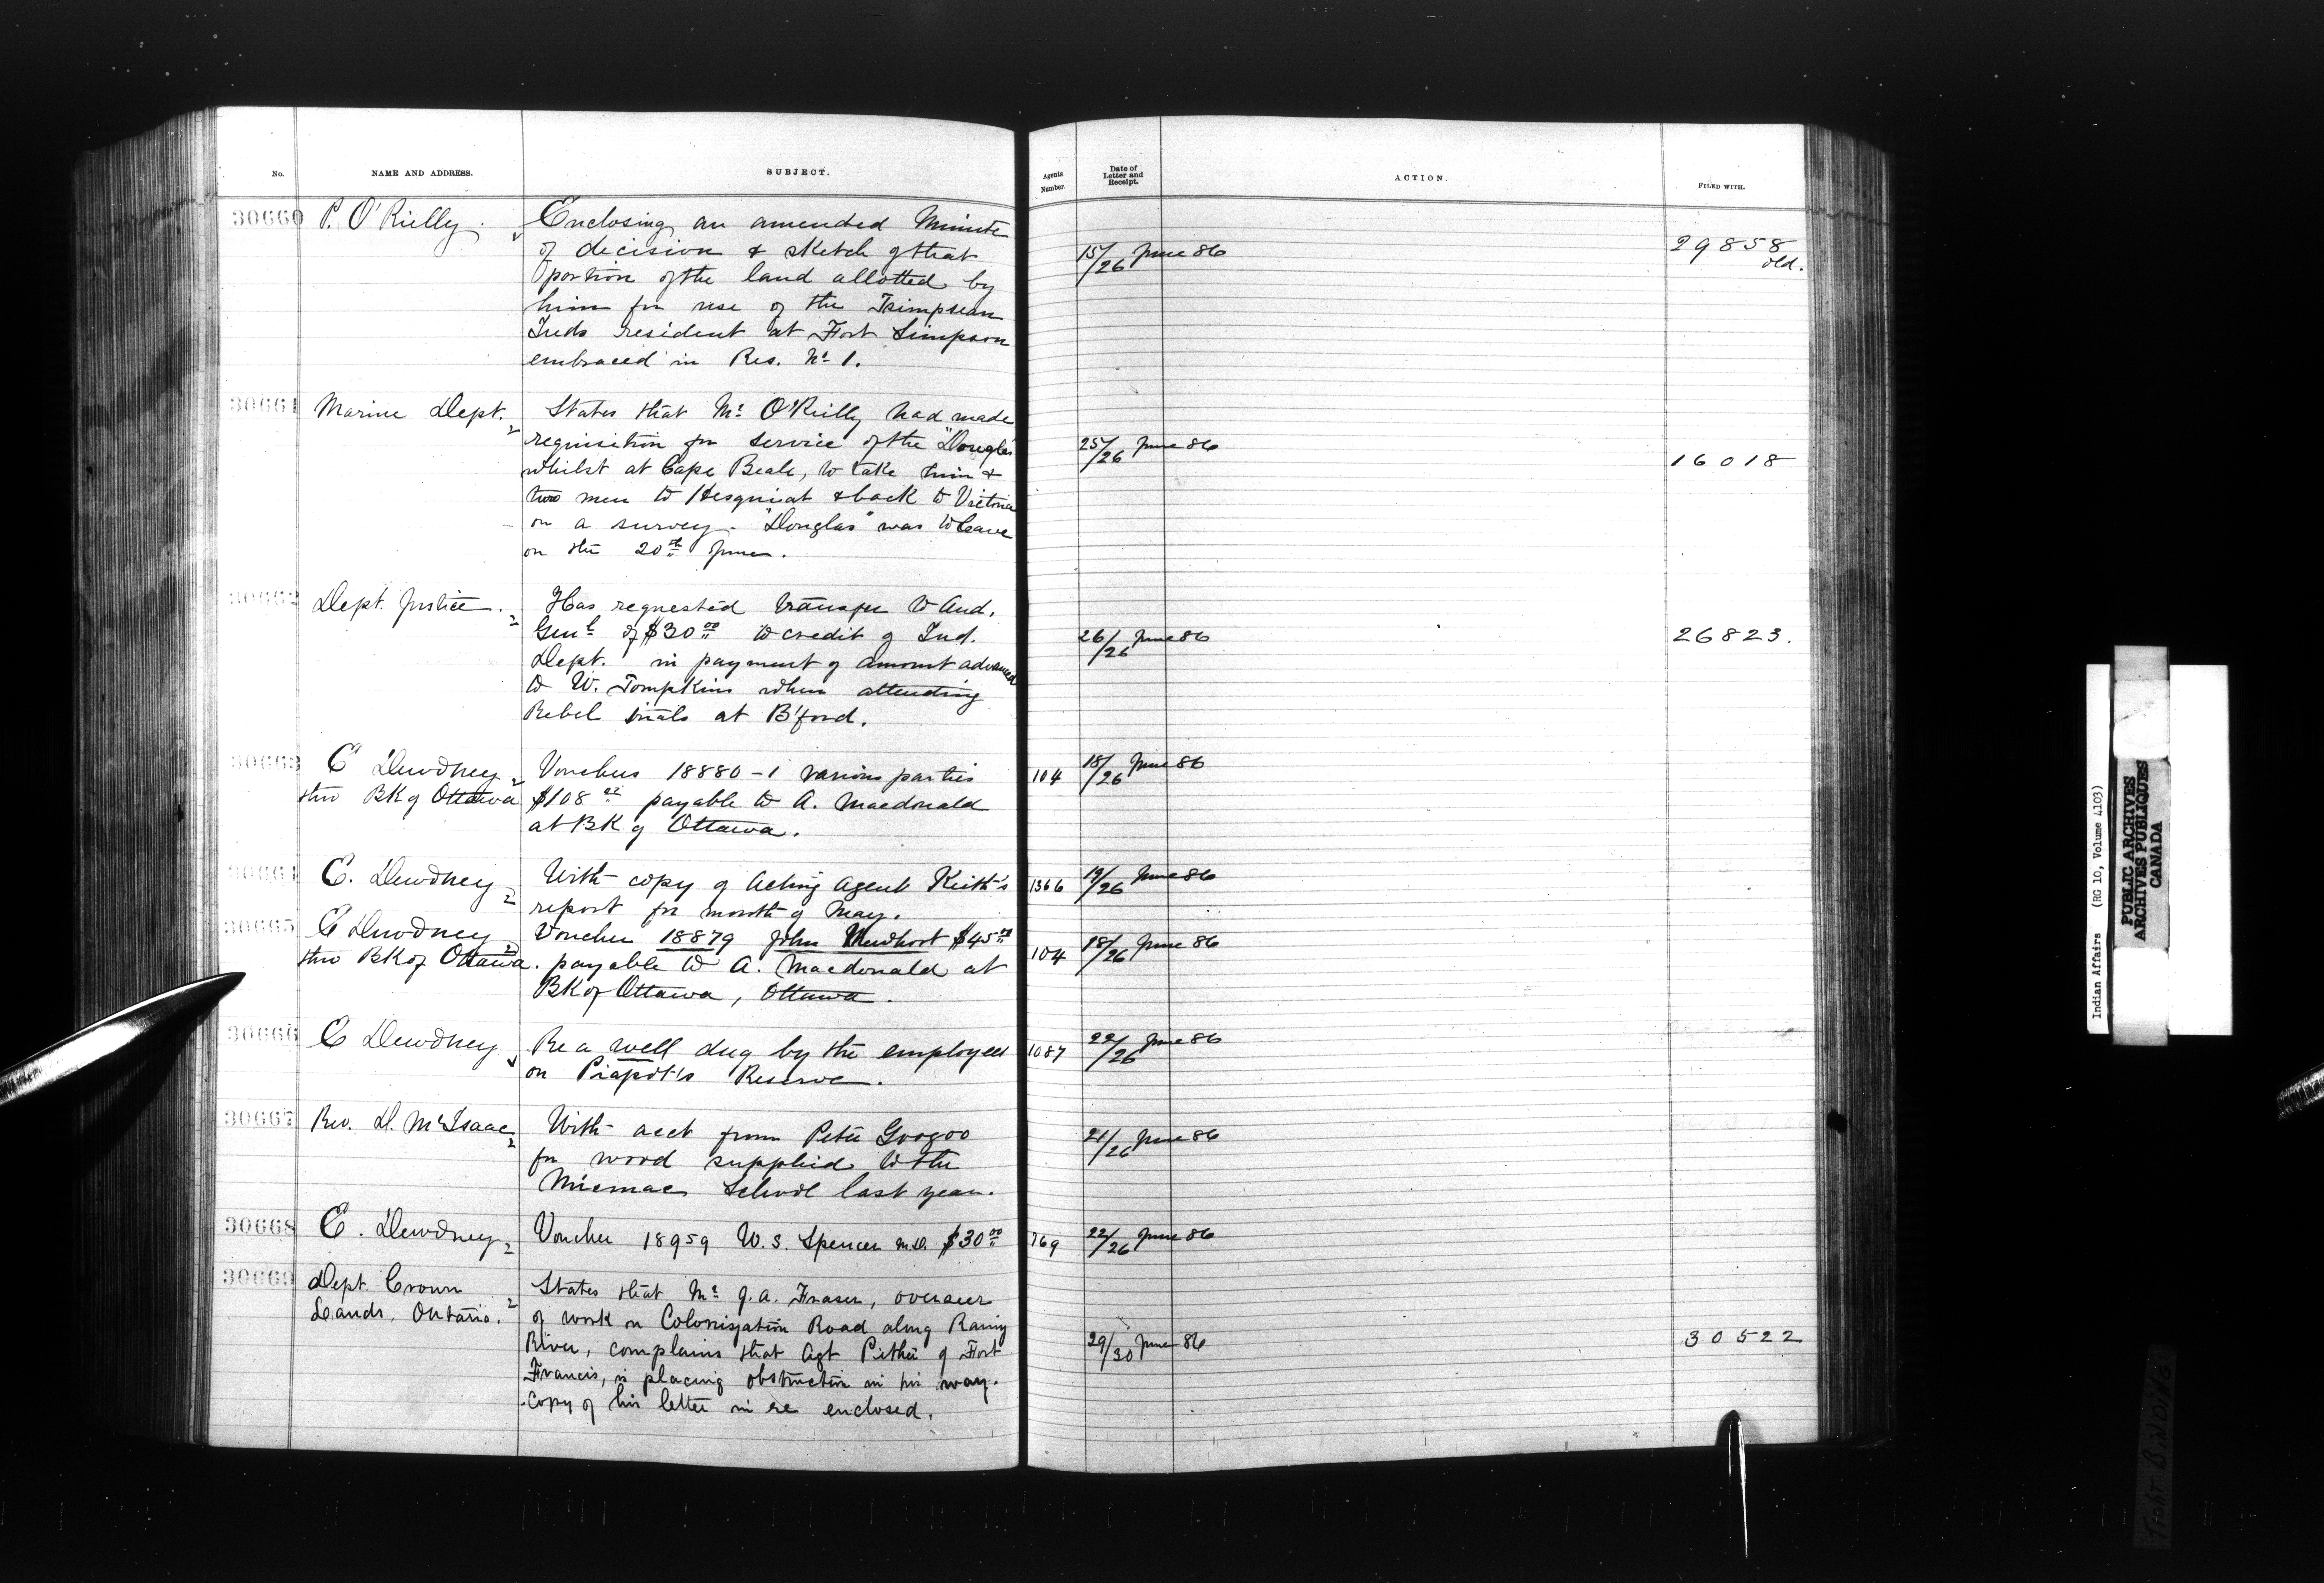 No.
NAME AND ADDRESS.
SUBJECT.
Agents Number.
Date of Letter and Receipt.
ACTION.
FILED WITH.
30660 P. O'Rielly. Enclosing an amended Minute
of decision & sketch of that
portion of the land allotted by
him for use of the Tsimpsean
Inds resident at Fort Simpson
embraced in Res. No 1.
15/26 June 86
29858
old.
30661 Marine Dept. States that Mr O'Reilly had made
requisition for service of the "Douglas"
whilst at Cape Beale, to take him &
two men to Hesquiat & back to Victoria
on a survey. "Douglas" was to leave
on the 20th June.
25/26 June 86
16018
30662 Dept. Justice. Has requested transfer to Aud.
Genl of $30 00 to credit of Ind.
Dept. in payment of amount advanced
to W. Tompkins when attending
Rebel trials at B'ford.
26/26 June 86
26823.
30663 E Dewdney Vouchers 18880-1 various parties
thro BK of Ottawa $108 payable to A. Macdonald
at BK of Ottawa.
104 18/26 June 86
30664 E. Dewdney With copy of Acting Agent Keith's
report for month of May.
1366 19/26 June 86
30665 E Dewdney Voucher 18879 John $45 00
thro BK of Ottawa. payable to A. Macdonald at
BK of Ottawa, Ottawa.
104 18/26 June 86
30666 E Dewdney Re a well dug by the employees
on Piapot's Reserve.
1087 22/26 June 86
30667 Rev. D. McIsaac With acct from Peter Googoo
for wood supplied to the
Micmac School last year.
21/26 June 86
30668 E. Dewdney Voucher 18959 W. S. Spencer M.D. $30 00
769 22/26 June 86
30669 Dept. Crown States that Mr J. A. Fraser, overseer
Lands, Ontario. of work on Colonization Road along Rainy
River, complains that Agt Pither of Fort
Francis, is placing obstruction in his way.
Copy of his letter in re enclosed.
29/30 June 86
30522
Indian Affairs (RG 10, Volume 4103)
PUBLIC ARCHIVES
ARCHIVES PUBLIQUES
CANADA
Tight Binding